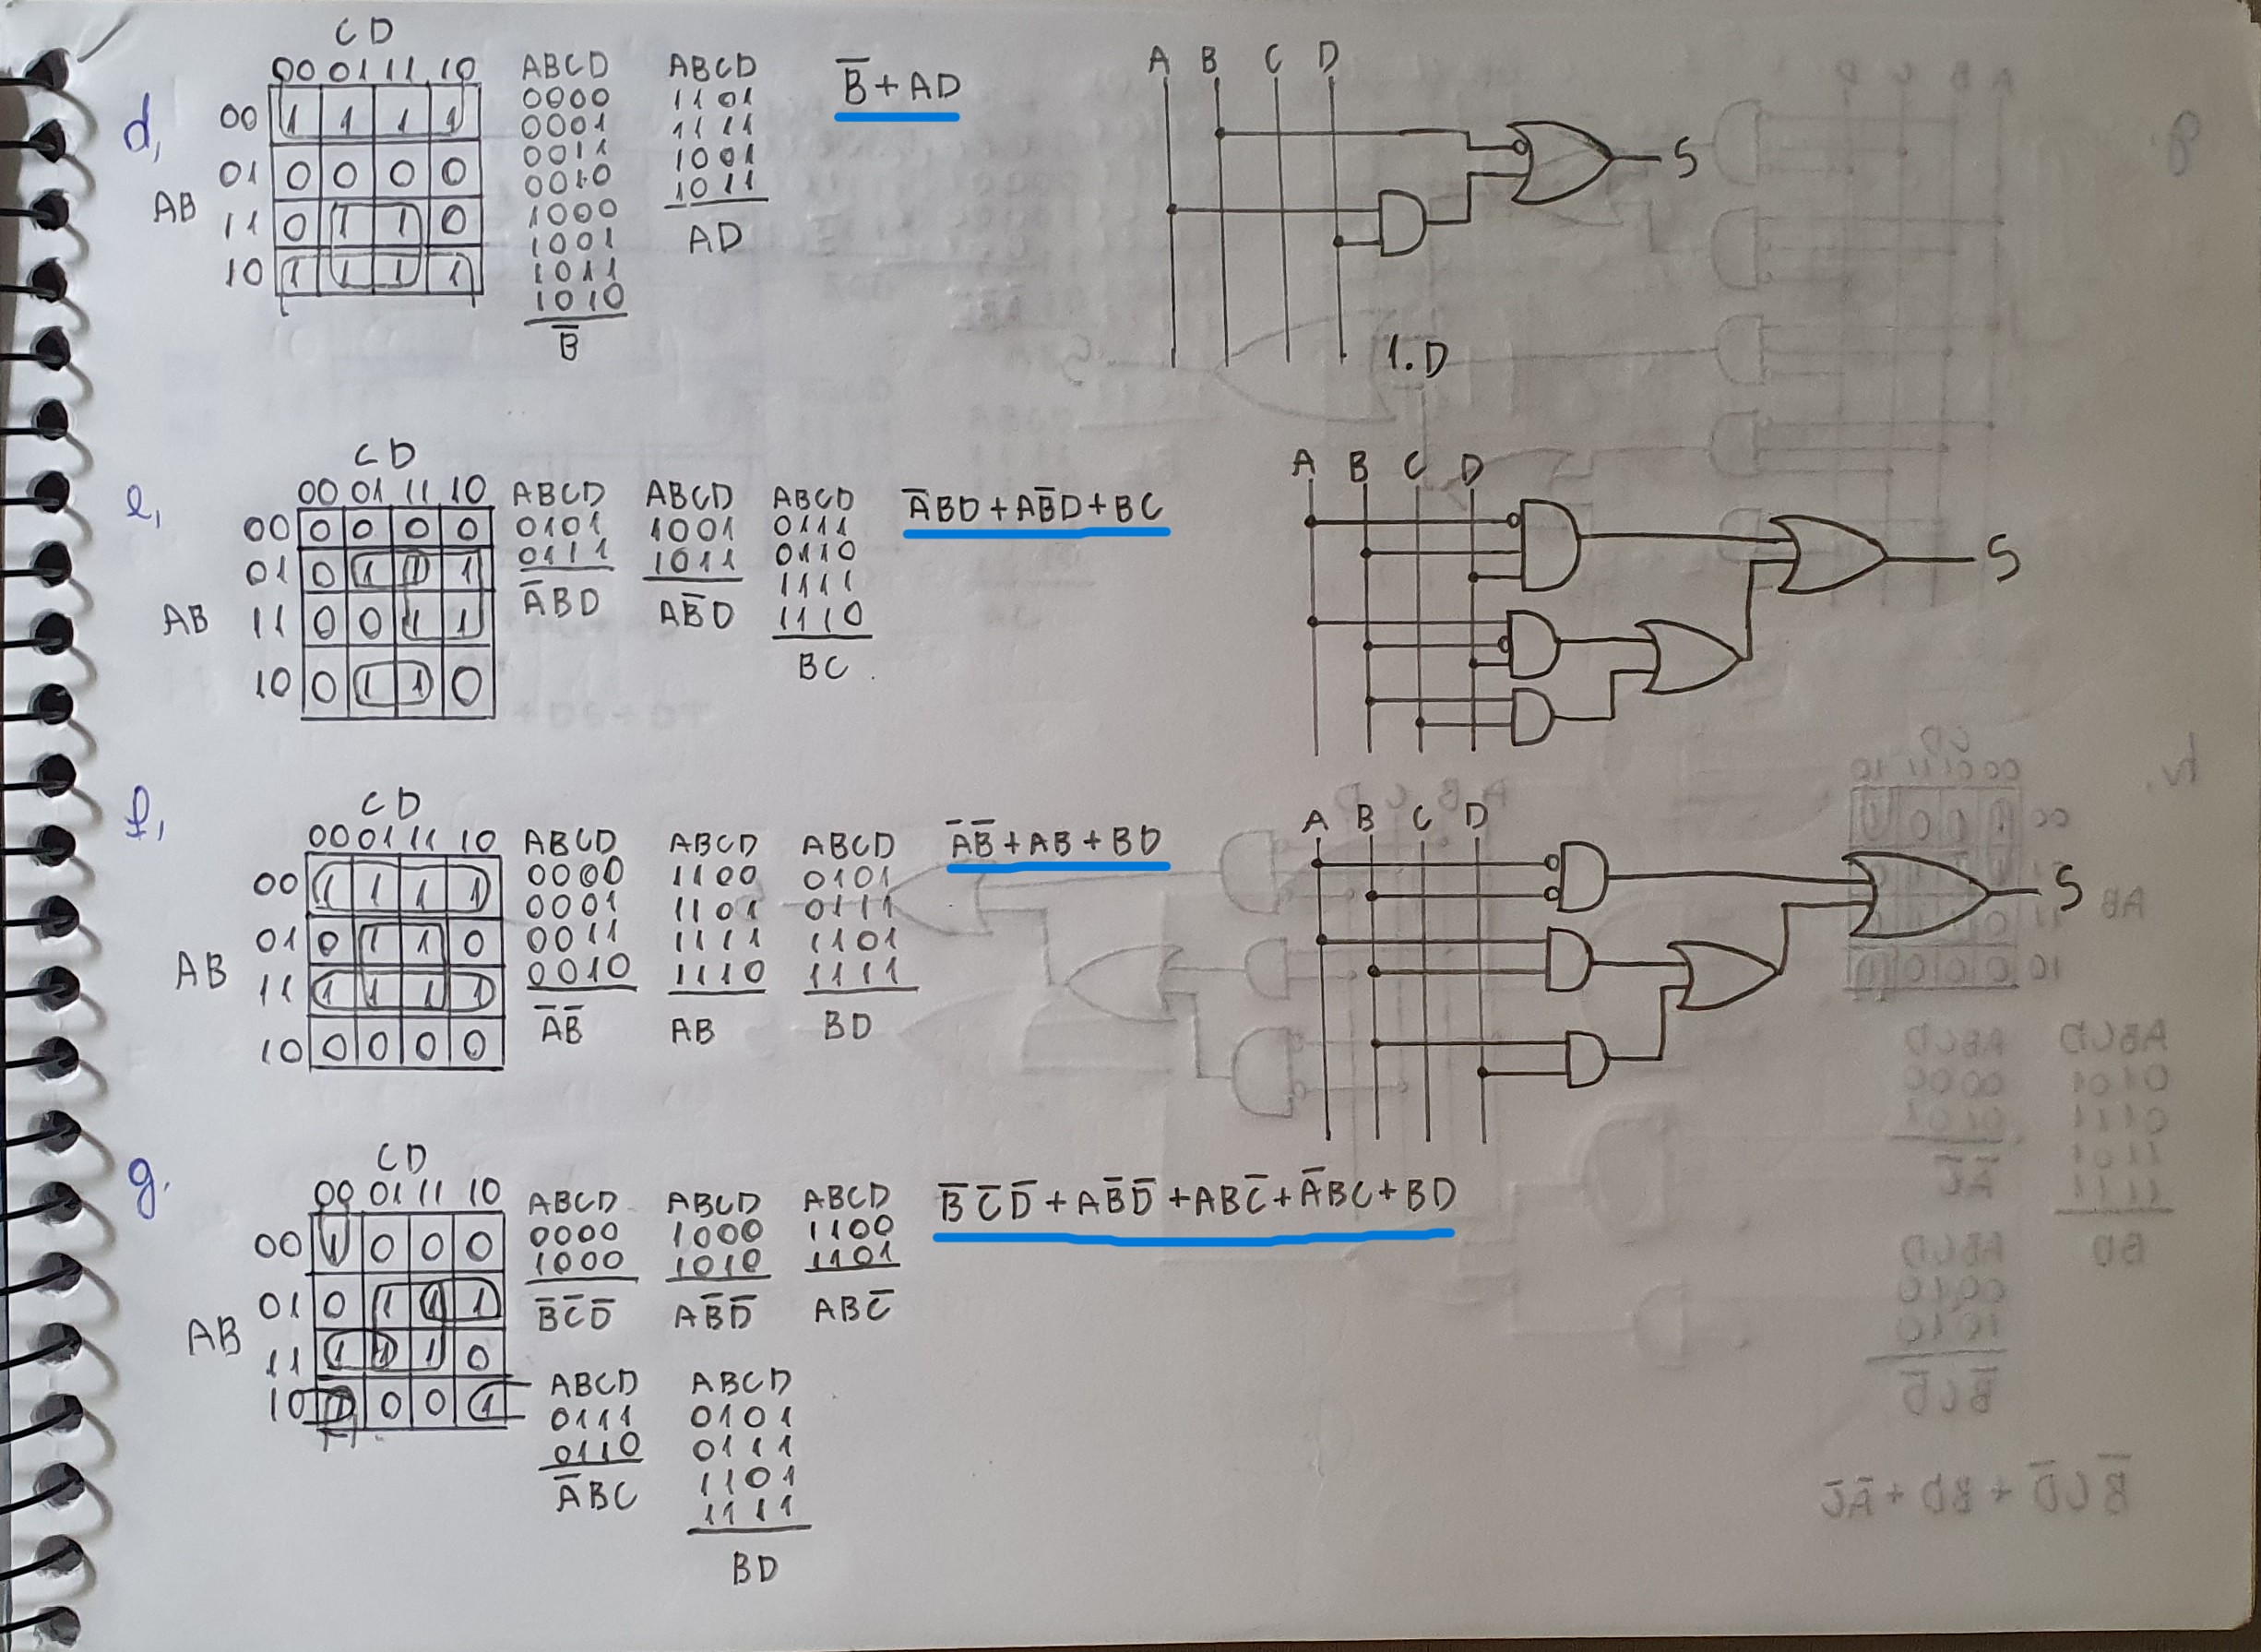 d,
CD
00 01 11 10
AB
00 1 1 1 1
01 0 0 0 0
11 0 1 1 0
10 1 1 1 1
ABCD
0000
0001
0011
0010
1000
1001
1011
1010
B̅
ABCD
1101
1111
1001
1011
AD
B̅ + AD
A B C D
S
1.D
e,
CD
00 01 11 10
AB
00 0 0 0 0
01 0 1 1 1
11 0 0 1 1
10 0 1 1 0
ABCD
0101
0111
A̅BD
ABCD
1001
1011
AB̅D
ABCD
0111
0110
1111
1110
BC
A̅BD + AB̅D + BC
A B C D
S
f,
CD
00 01 11 10
AB
00 1 1 1 1
01 0 1 1 0
11 1 1 1 1
10 0 0 0 0
ABCD
0000
0001
0011
0010
A̅B̅
ABCD
1100
1101
1111
1110
AB
ABCD
0101
0111
1101
1111
BD
A̅B̅ + AB + BD
A B C D
S
g.
CD
00 01 11 10
AB
00 1 0 0 0
01 0 1 1 1
11 1 1 1 0
10 1 0 0 1
ABCD
0000
1000
B̅C̅D̅
ABCD
1000
1010
AB̅D̅
ABCD
1100
1101
ABC̅
ABCD
0111
0110
A̅BC
ABCD
0101
0111
1101
1111
BD
B̅C̅D̅ + AB̅D̅ + ABC̅ + A̅BC + BD